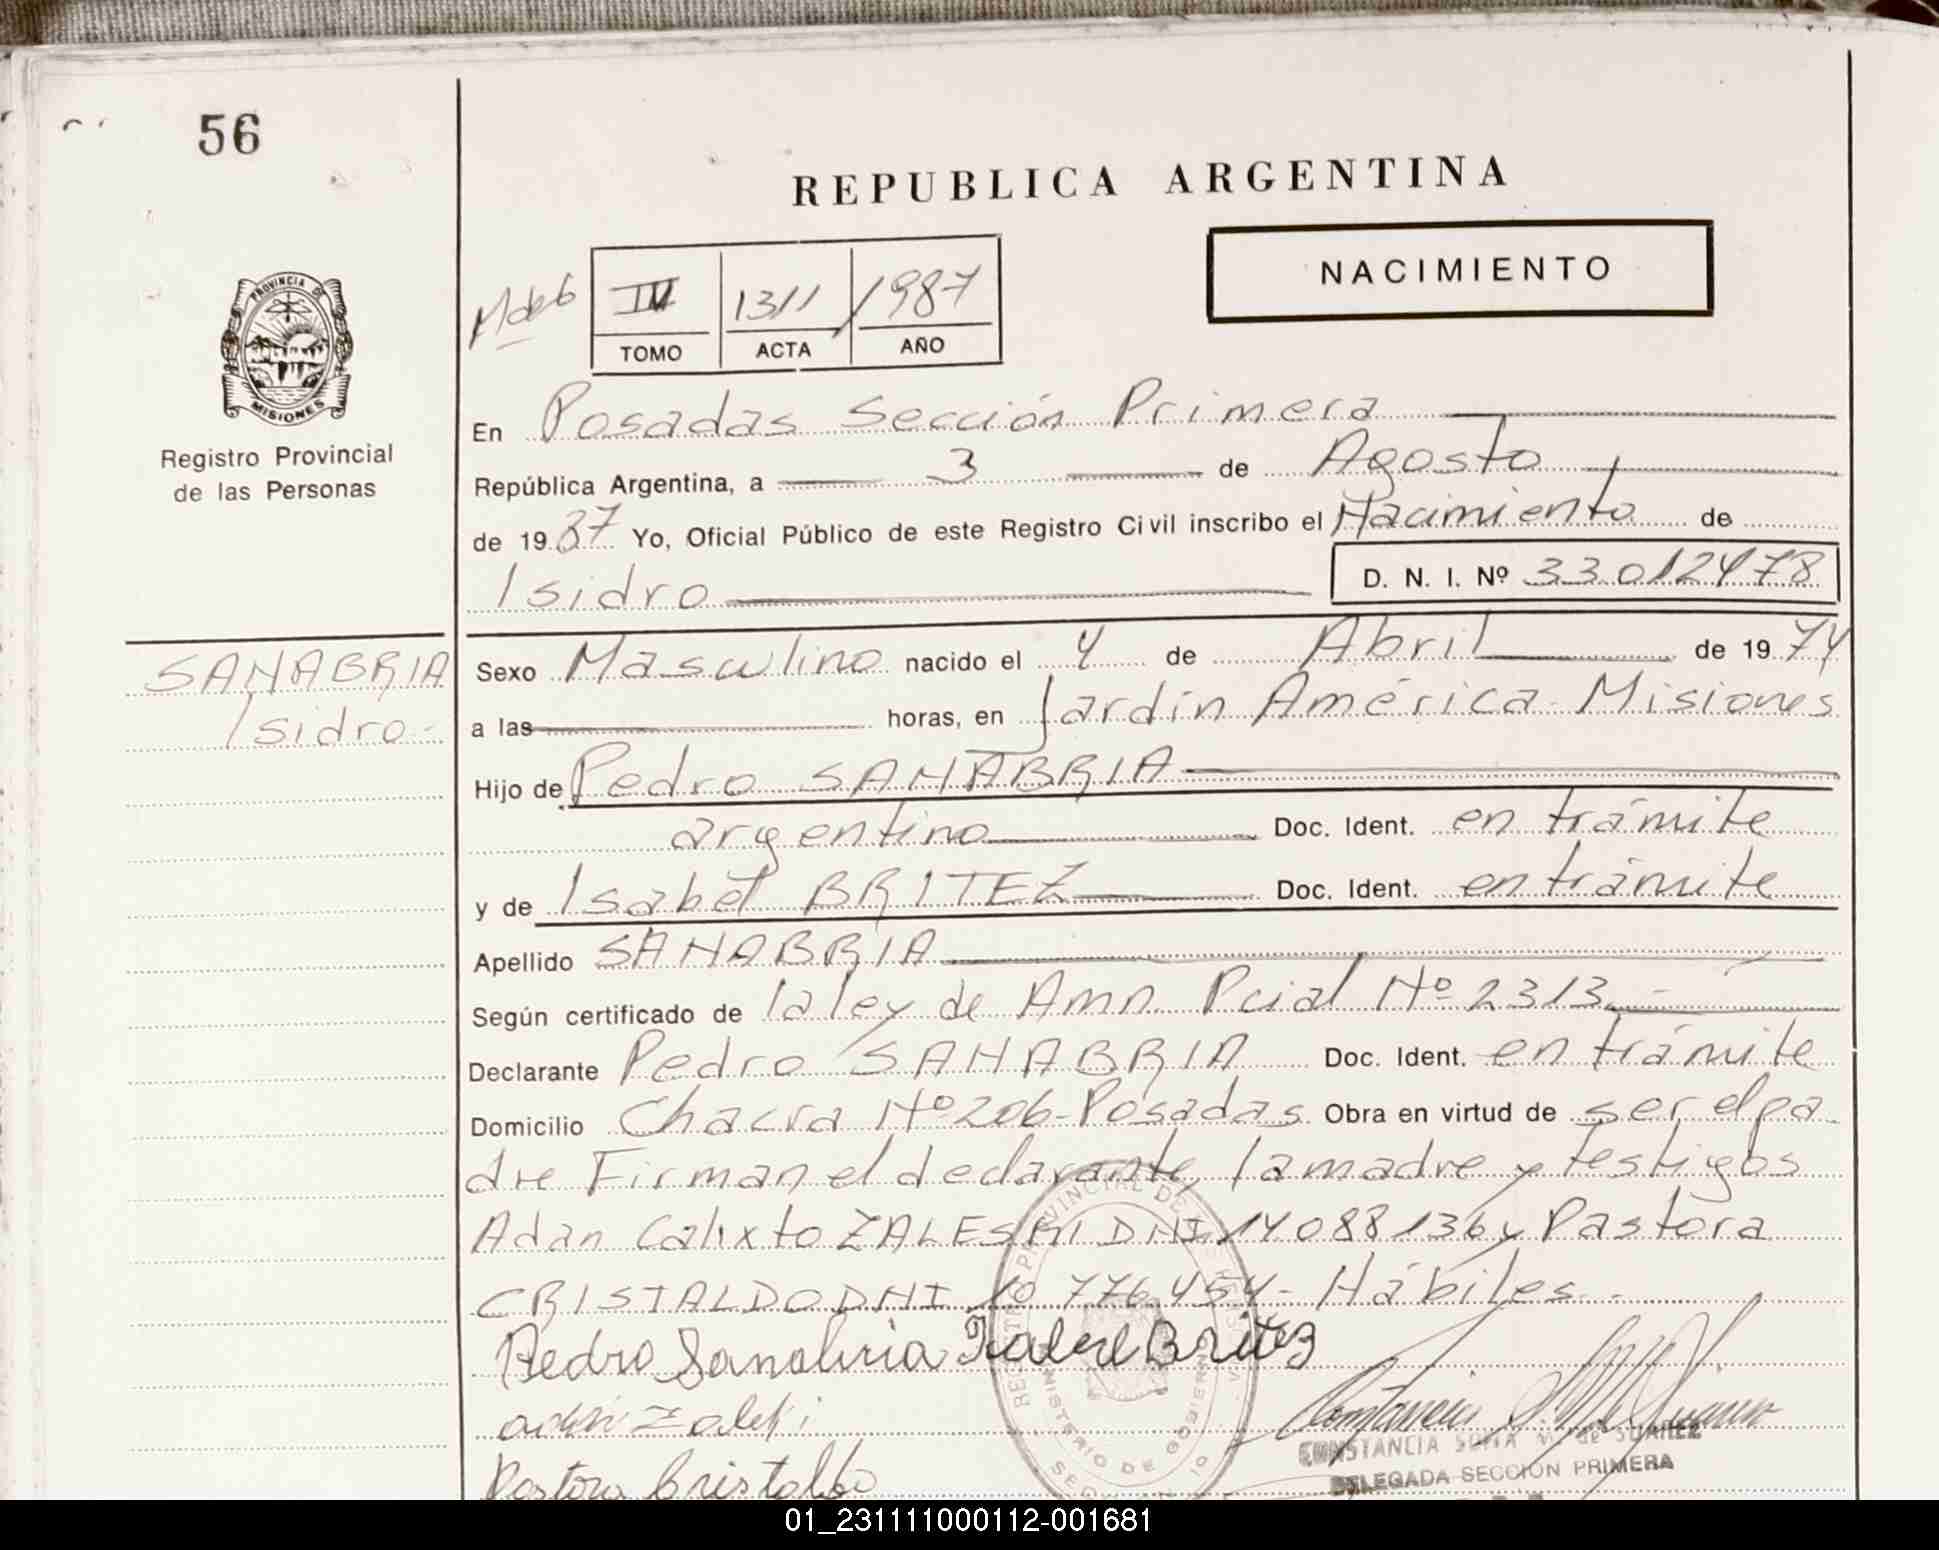 56
REPUBLICA ARGENTINA
NACIMIENTO
IV 1311 1987
TOMO ACTA AÑO
PROVINCIA DE
MISIONES
Registro Provincial
de las Personas
En Posadas Sección Primera
República Argentina, a 3 de Agosto
de 1987 Yo, Oficial Público de este Registro Civil inscribo el Nacimiento de
Isidro D. N. I. Nº 33012478
SANABRIA
Isidro-
Sexo Masculino nacido el 4 de Abril de 1974
a las horas, en Jardín América-Misiones
Hijo de Pedro SANABRIA
argentino Doc. Ident. en trámite
y de Isabel BRITEZ Doc. Ident. en trámite
Apellido SANABRIA
Según certificado de la ley de Amn. Pcial Nº 2313.-
Declarante Pedro SANABRIA Doc. Ident. en trámite
Domicilio Chacra Nº206-Posadas Obra en virtud de ser el pa
dre Firman el declarante, la madre y testigos
Adan Calixto ZALESKI DNI 14088136 y Pastora
CRISTALDO DNI 10.776.454- Hábiles.-
Pedro Sanabria Isabel Britez
Pastora Cristaldo
CONSTANCIA de SUAREZ
DELEGADA SECCION PRIMERA
01_231111000112-001681